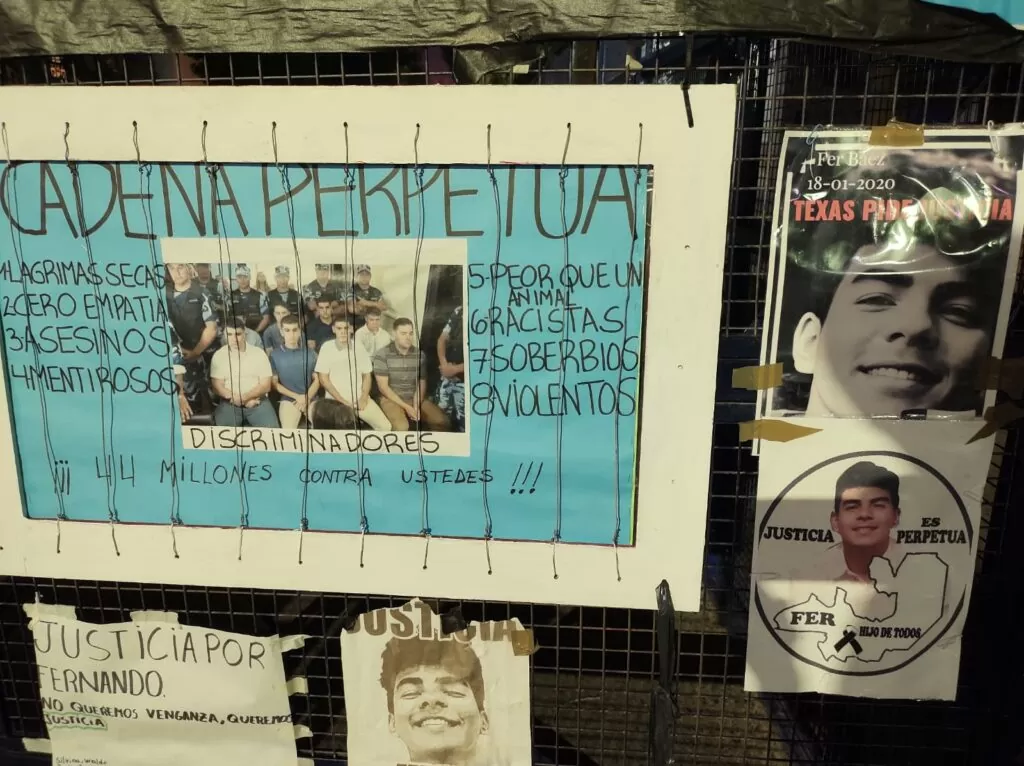 CADENA PERPETUA
1-LAGRIMAS SECAS
2-CERO EMPATIA
3-ASESINOS
4-MENTIROSOS
5-PEOR QUE UN
ANIMAL
6-RACISTAS
7-SOBERBIOS
8-VIOLENTOS
DISCRIMINADORES
¡¡¡ 44 MILLONES CONTRA USTEDES !!!
Fer Báez
18-01-2020
TEXAS PIDE JUSTICIA
JUSTICIA ES
PERPETUA
FER
HIJO DE TODOS
JUSTICIA POR
FERNANDO.
NO QUEREMOS VENGANZA, QUEREMOS
JUSTICIA
JUSTICIA